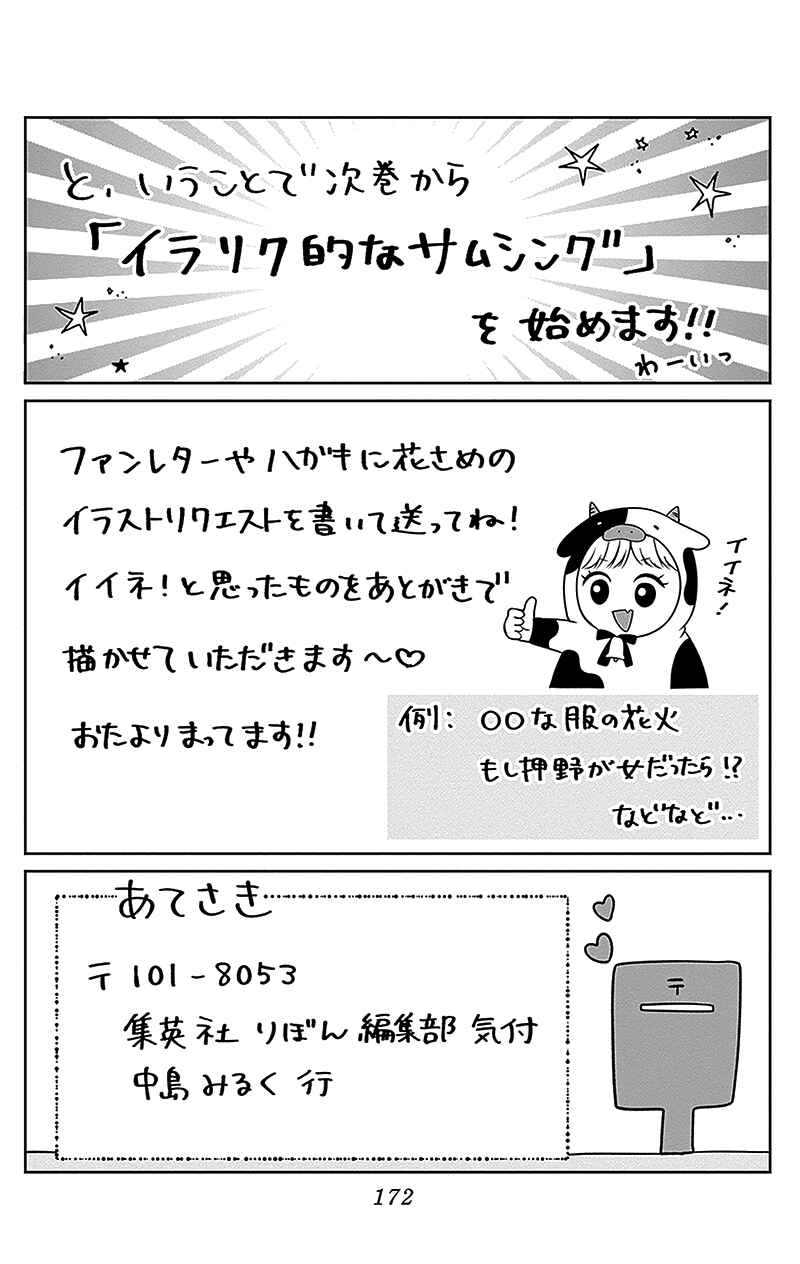 と、いうことで次巻から
「イラリク的なサムシング」
を始めます!!
わーいっ
ファンレターやハガキに花さめの
イラストリクエストを書いて送ってね!
イイネ!と思ったものをあとがきで
描かせていただきます〜♡
おたよりまってます!!
イイネ!
例:○○な服の花火
もし押野が女だったら!?
などなど…
あてさき
〒101-8053
集英社 りぼん編集部 気付
中島みるく 行
〒
172